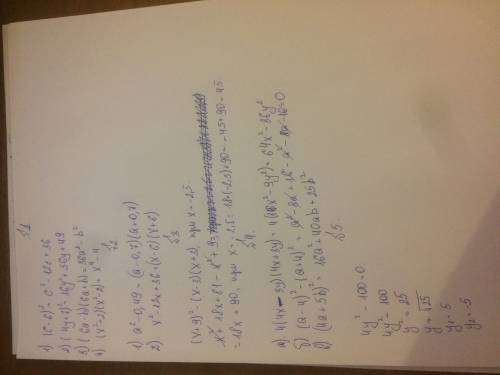 №1
1) (c-6)² = c² - 12c + 36
2) (4y+7)² = 16y² + 56y + 49
3) (6a-b)(6a+b) = 36a² - b²
4) (x²+2)(x²-2) = x⁴ - 4
№2
1) a² - 0,49 = (a-0,7)(a+0,7)
2) x² - 12x + 36 = (x-6)(x-6)
№3
(x+9)² - (x-3)(x+3), при x = -2,5
x² + 18x + 81 - x² + 9 =
= 18x + 90, при x = -2,5: 18·(-2,5) + 90 = -45 + 90 = 45
№4
а) 4(4x-3y)(4x+3y) = 4(16x² - 9y²) = 64x² - 36y²
б) (a-4)² - (a+4)² = a² - 8a + 16 - a² - 8a - 16 = 0
в) (4a+5b)² = 16a² + 40ab + 25b²
№5
4y² - 100 = 0
4y² = 100
y² = 25
y = √25
y₁ = 5
y₂ = -5